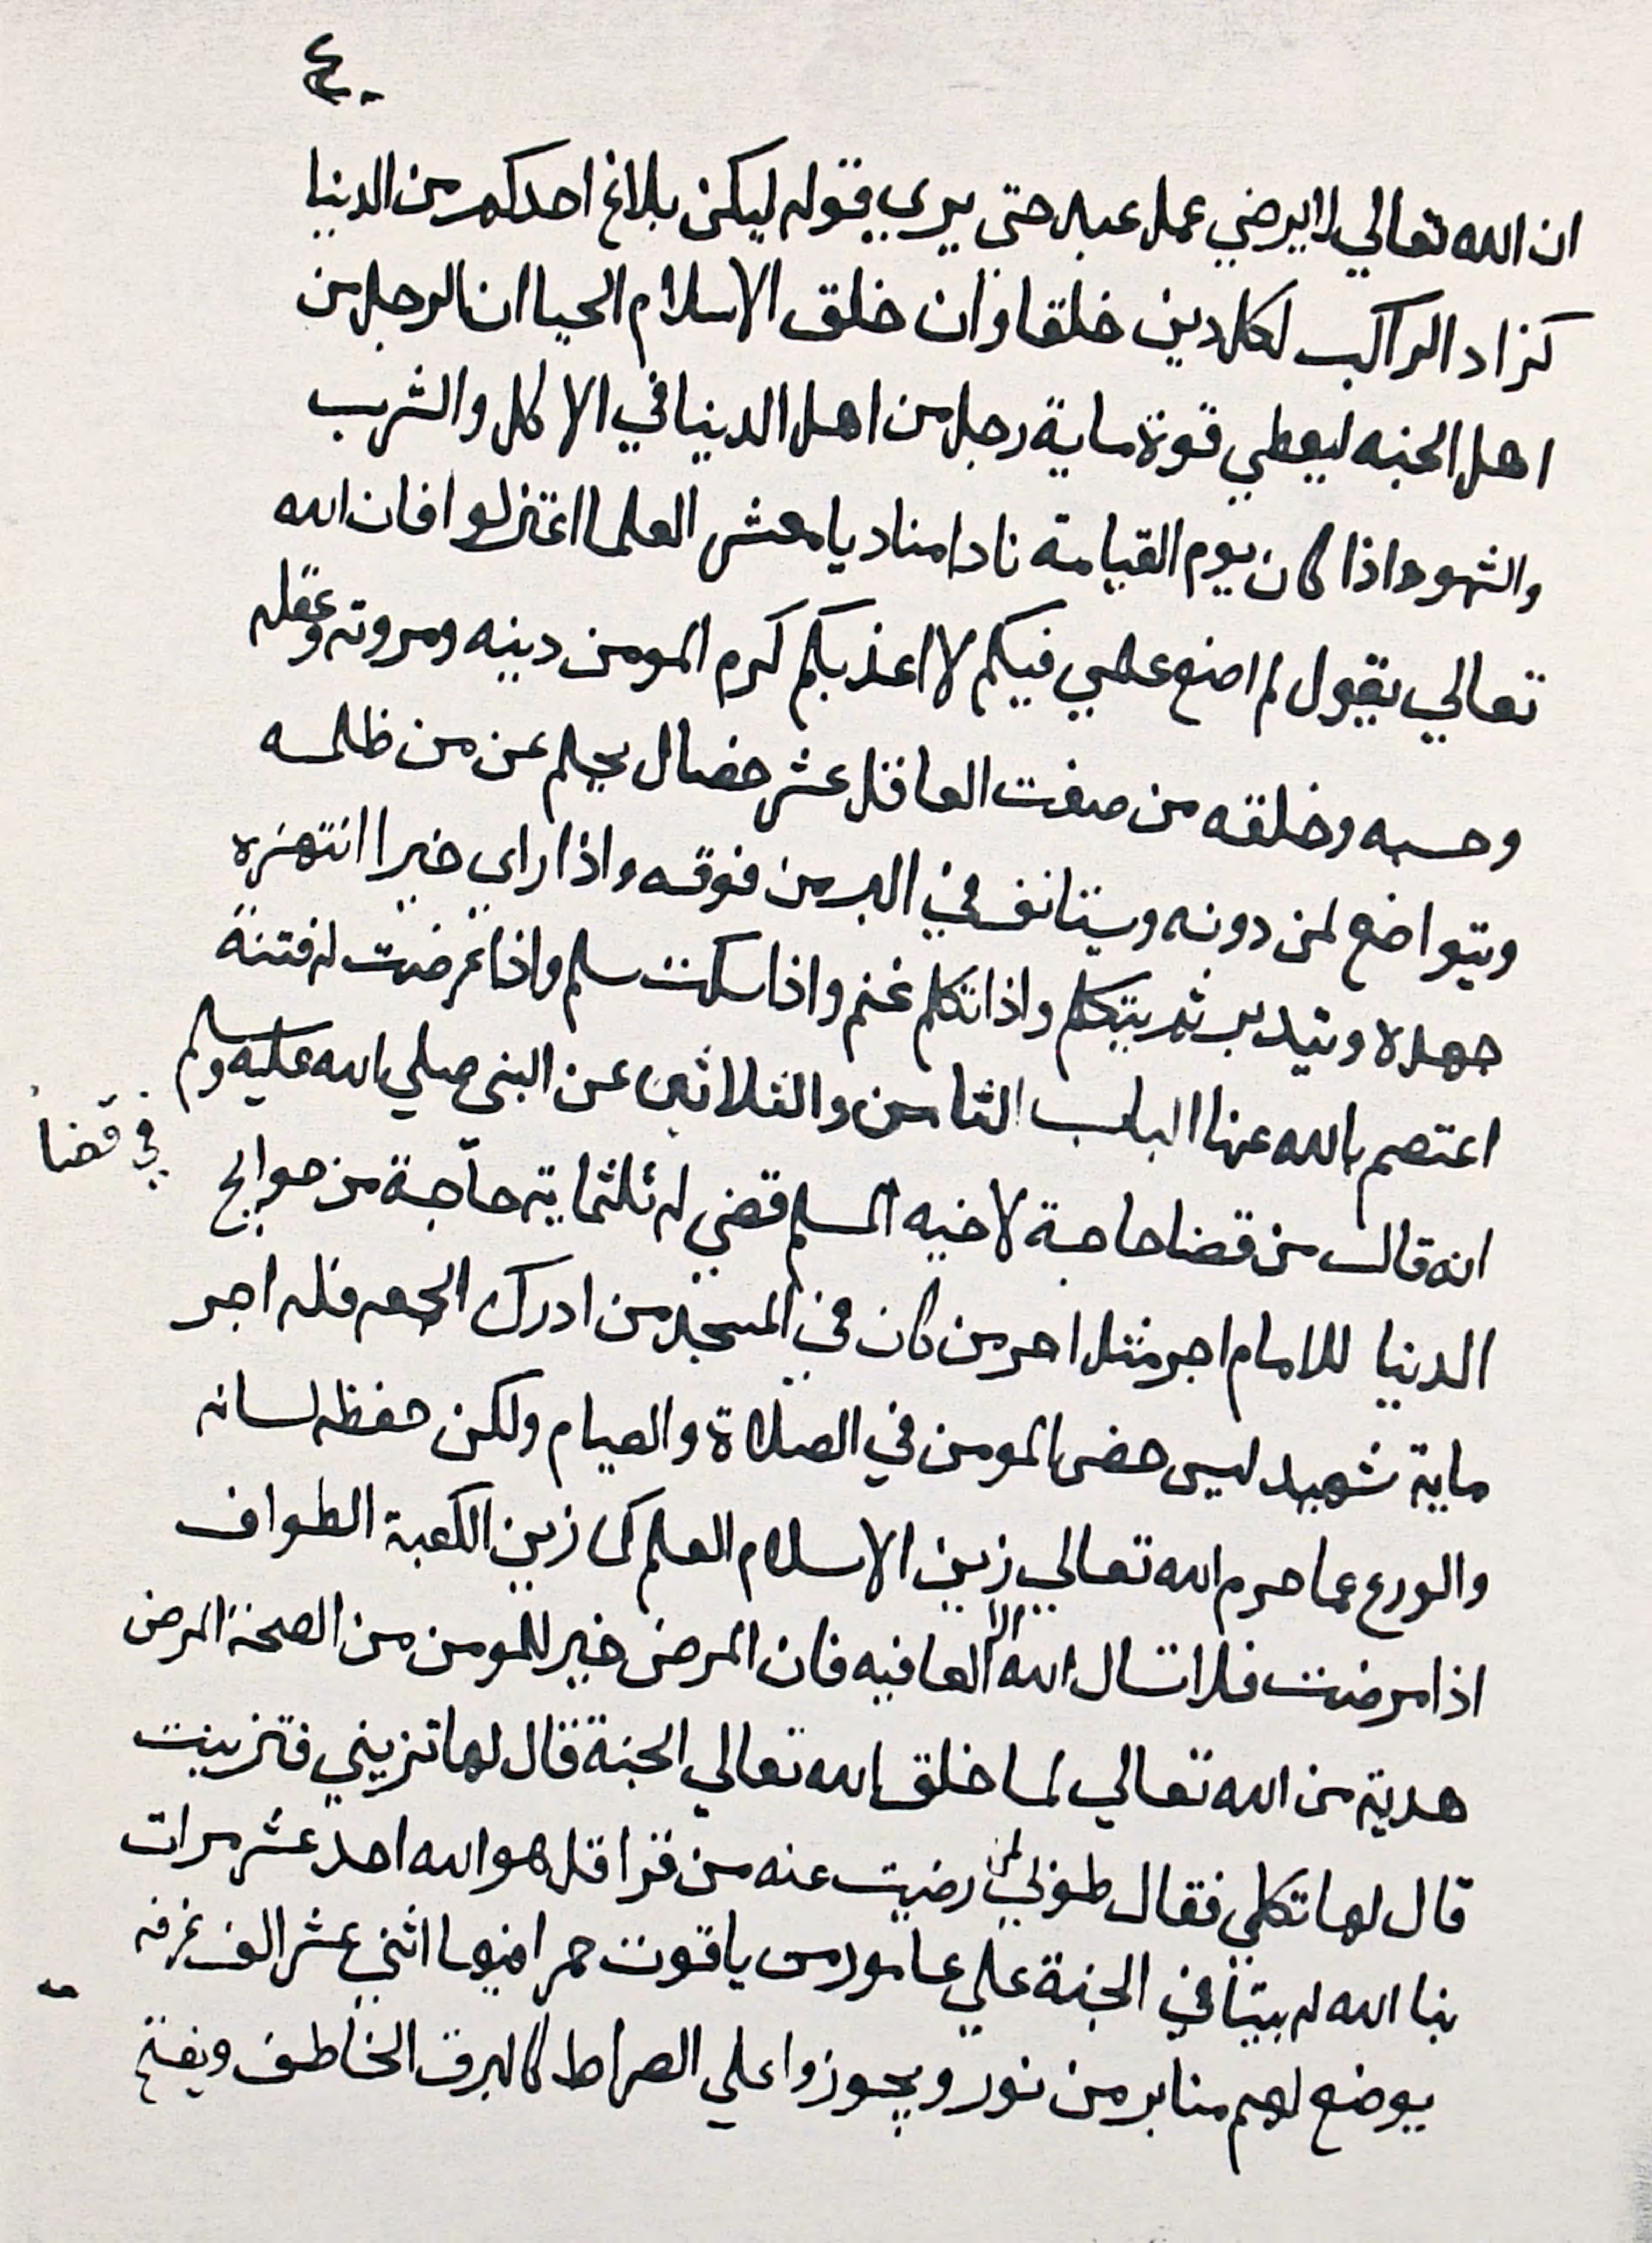 ٤٠
ان الله تعالي لا يرضي عمل عبد حتى يرى قوله ليكن بلاغ احدكم من الدنيا
كزاد الراكب لكل دين خلقا وان خلق الاسلام الحيا ان الرجل من
اهل الجنه ليعطي قوة ماية رجل من اهل الدنيا في الاكل والشرب
والشهوه واذا كان يوم القيامة نادا مناد يا معشر العلما اعتزلوا فان الله
تعالي يقول لم اضع علمي فيكم لا اعذبكم كرم المومن دينه ومروته وعقله
وحسبه وخلقه من صفت العاقل عشر خصال يحلم عن من ظلمه
ويتواضع لمن دونه ويتانف في البر من فوقه واذا راى خيرا انتهزه
جهده ويتدبر ثم يتكلم واذا تكلم غنم واذا سكت سلم واذا عرضت له فتنة
اعتصم بالله عنها الباب الثامن والثلاثين عن النبي صلي الله عليه وسلم
في قضا
انه قال من قضا حاجة لاخيه المسلم قضي له ثلثماية حاجة من حوايج
الدنيا للامام اجر مثل اجر من كان في المسجد من ادرك الجمعه فله اجر
ماية شهيد ليس حض المومن في الصلاة والصيام ولكن حفظه لسانه
والورع عما حرم الله تعالي زين الاسلام العلم كما زين الكعبة الطواف
اذا مرضت فلا تسال الله الا العافيه فان المرض خير للمومن من الصحة المرض
هدية من الله تعالي لما خلق الله تعالي الجنة قال لها تزيني فتزينت
قال لها تكلمي فقال طوبى لمن رضيت عنه من قرا قل هو الله احد عشر مرات
بنا الله له بيتا في الجنة علي عامود من ياقوت حمرا فيها اثني عشر الف غرفه
يوضع لهم منابر من نور ويجوزوا علي الصراط كالبرق الخاطف ويفتح